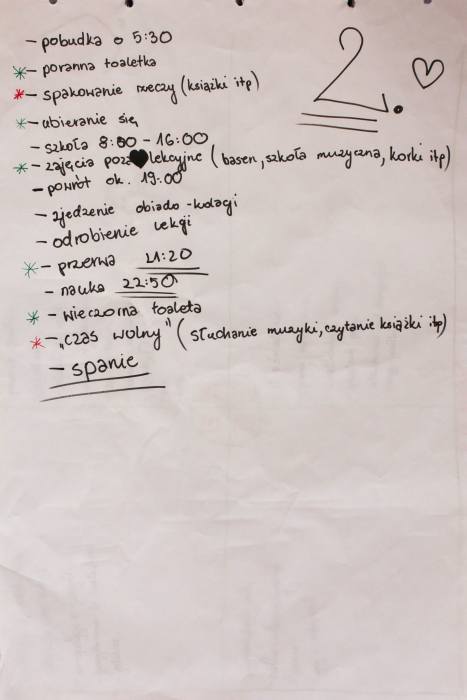 2.
- pobudka o 5:30
* - poranna toaletka
* - spakowanie rzeczy (książki itp)
* - ubieranie się
- szkoła 8:00 - 16:00
* - zajęcia poza lekcyjne (basen, szkoła muzyczna, korki itp)
- powrót ok. 19:00
- zjedzenie obiado - kolacji
- odrobienie lekcji
* - przerwa 21:20
- nauka 22:50
* - wieczorna toaleta
* - „czas wolny" (słuchanie muzyki, czytanie książki itp)
- spanie